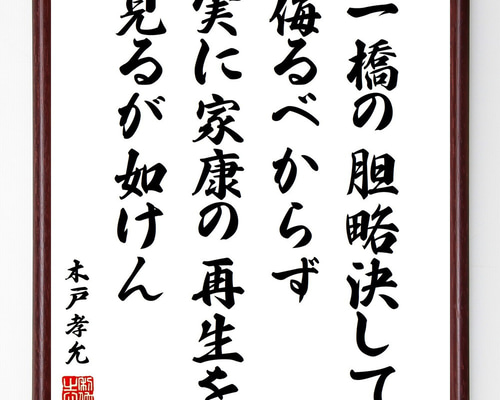 一橋の胆略決して
侮るべからず
実に家康の再生を
見るが如けん
木戸孝允